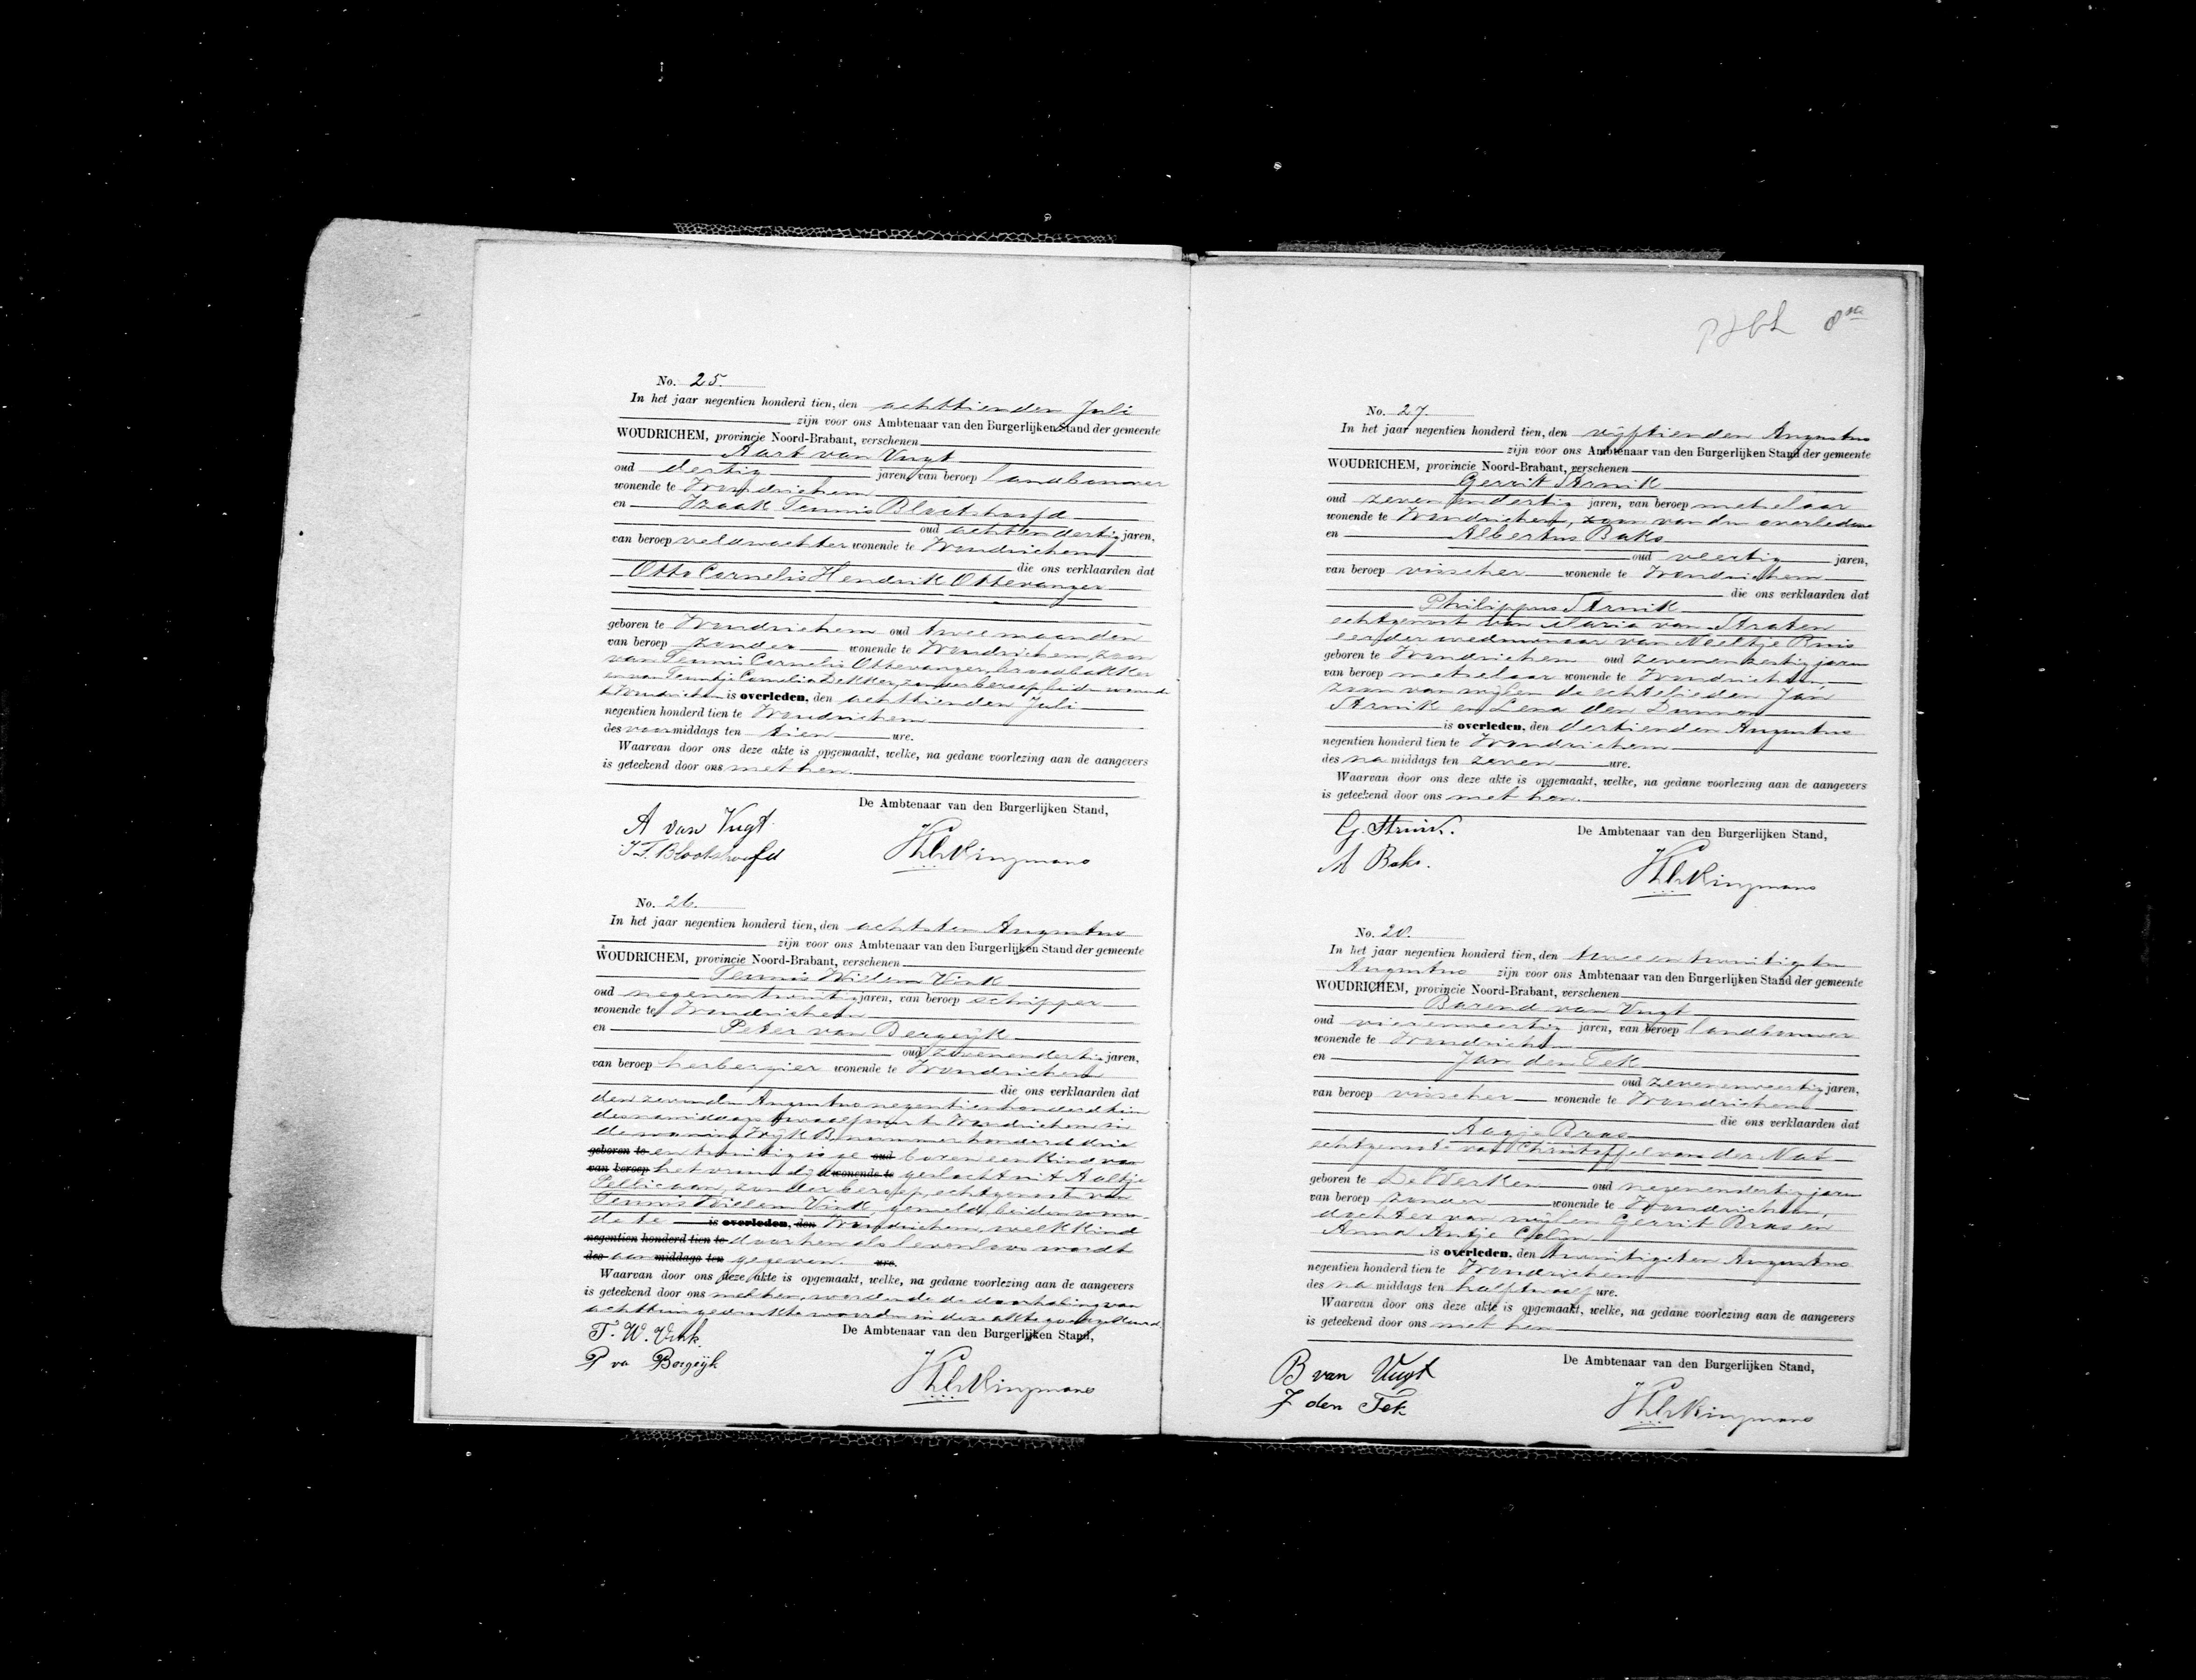 No. 25.
In het jaar negentien honderd tien, den achttienden Juli
zijn voor ons Ambtenaar van den Burgerlijken Stand der gemeente
WOUDRICHEM, provincie Noord-Brabant, verschenen
Aart van Vugt
oud dertig jaren, van beroep landbouwer
wonende te Woudrichem
en Izaak Teunis Blootshoofd
oud achtendertig jaren,
van beroep veldwachter wonende te Woudrichem
die ons verklaarden dat
Otto Cornelis Hendrik Ottevanger
geboren te Woudrichem oud twee maanden
van beroep zonder wonende te Woudrichem, zoon
van Teunis Cornelis Ottevanger, broodbakker
en van Teuntje Cornelia Dekker, zonder beroep, beiden wonende
te Woudrichem is overleden, den achttienden Juli
negentien honderd tien te Woudrichem
des voormiddags ten tien ure.
Waarvan door ons deze akte is opgemaakt, welke, na gedane voorlezing aan de aangevers
is geteekend door ons met hen.
De Ambtenaar van den Burgerlijken Stand,
A van Vugt
I. T. Blootshoofd
No. 26.
In het jaar negentien honderd tien, den achtsten Augustus
zijn voor ons Ambtenaar van den Burgerlijken Stand der gemeente
WOUDRICHEM, provincie Noord-Brabant, verschenen
Teunis Willem Vink
oud negenentwintig jaren, van beroep schipper
wonende te Woudrichem
en Peter van Bergeijk
oud zevenendertig jaren,
van beroep herbergier wonende te Woudrichem
die ons verklaarden dat
den zevenden Augustus negentienhonderd tien
des namiddags twaalf uur te Woudrichem in
de woning Wijk B, nummer honderd drie
geboren te en twintig is ge oud boren een kind van
van beroep het vrouwelijk wonende te geslacht uit Aaltje
Pellicaan, zonder beroep, echtgenoot van
Teunis Willem Vink, gemeld, beiden wonen-
de te is overleden, den Woudrichem, welk kind
negentien honderd tien te door hen als levenloos wordt
des aan middags ten gegeven. ure.
Waarvan door ons deze akte is opgemaakt, welke, na gedane voorlezing aan de aangevers
is geteekend door ons met hen, wordende de doorhaling van
achttien gedrukte woorden in deze akte goedgekeurd.
De Ambtenaar van den Burgerlijken Stand,
T. W. Vink.
P va Bergeijk
No. 27.
In het jaar negentien honderd tien, den vijftienden Augustus
zijn voor ons Ambtenaar van den Burgerlijken Stand der gemeente
WOUDRICHEM, provincie Noord-Brabant, verschenen
Gerrit Struik
oud zevenendertig jaren, van beroep metselaar
wonende te Woudrichem, zoon van den overledene
en Albertus Baks
oud veertig jaren,
van beroep visscher wonende te Woudrichem
die ons verklaarden dat
Philippus Struik
echtgenoot van Maria van Straten
eerder weduwnaar van Neeltje Kuis
geboren te Woudrichem oud zevenenzestig jaren
van beroep metselaar wonende te Woudrichem,
zoon van wijlen de echtelieden Jan
Struik en Lena den Dunnen
is overleden, den dertienden Augustus
negentien honderd tien te Woudrichem
des namiddags ten zeven ure.
Waarvan door ons deze akte is opgemaakt, welke, na gedane voorlezing aan de aangevers
is geteekend door ons met hen.
De Ambtenaar van den Burgerlijken Stand,
G. Struik.
A Baks.
No. 28.
In het jaar negentien honderd tien, den tweeentwintigsten
Augustus zijn voor ons Ambtenaar van den Burgerlijken Stand der gemeente
WOUDRICHEM, provincie Noord-Brabant, verschenen
Barend van Vugt
oud vierenveertig jaren, van beroep landbouwer
wonende te Woudrichem
en Jan den Tek
oud zevenenveertig jaren,
van beroep visscher wonende te Woudrichem
die ons verklaarden dat
Kaatje Bras
echtgenoote van Christoffel van der Nat
geboren te De Werken oud negenendertig jaren
van beroep zonder wonende te Woudrichem,
dochter van wijlen Gerrit Bras en
Anna Antje
is overleden, den twintigsten Augustus
negentien honderd tien te Woudrichem
des namiddags ten half twaalf ure.
Waarvan door ons deze akte is opgemaakt, welke, na gedane voorlezing aan de aangevers
is geteekend door ons met hen
De Ambtenaar van den Burgerlijken Stand,
B van Vugt
J den Tek